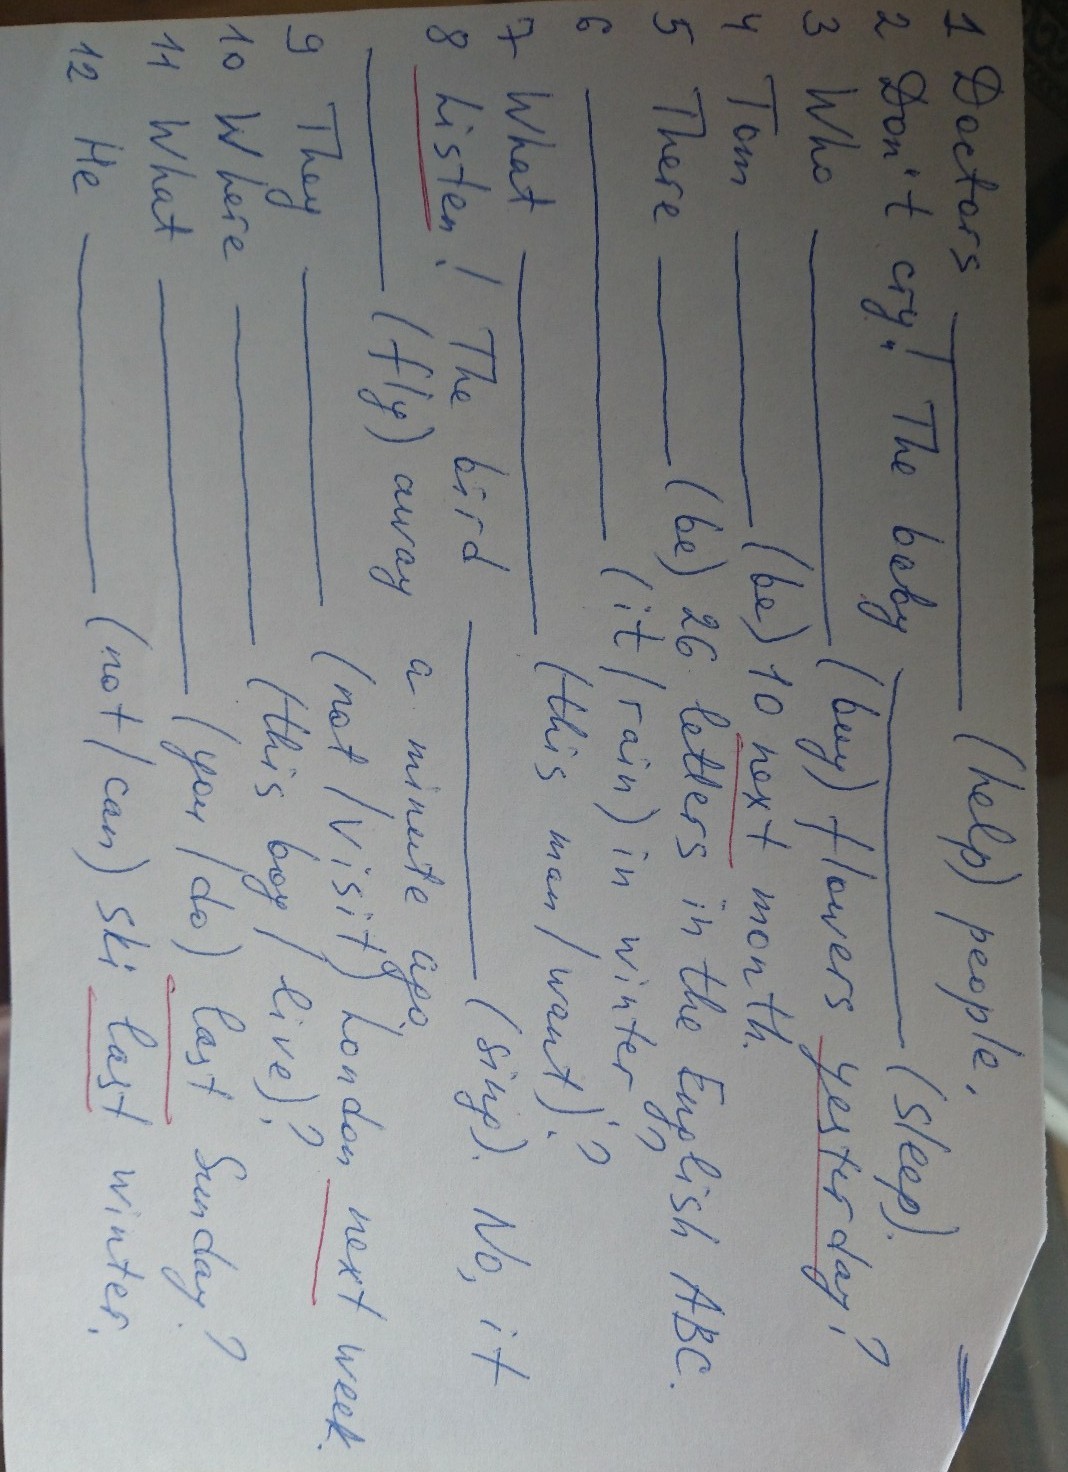 1 Doctors ________ (help) people.
2 Don't cry! The baby ________ (sleep).
3 Who ________ (buy) flowers yesterday?
4 Tom ________ (be) 10 next month.
5 There ________ (be) 26 letters in the English ABC.
6 ________ (it/rain) in winter?
7 What ________ (this man/want)?
8 Listen! The bird ________ (sing). No, it
________ (fly) away a minute ago.
9 They ________ (not/visit) London next week.
10 Where ________ (this boy/live)?
11 What ________ (you/do) last Sunday?
12 He ________ (not/can) ski last winter.